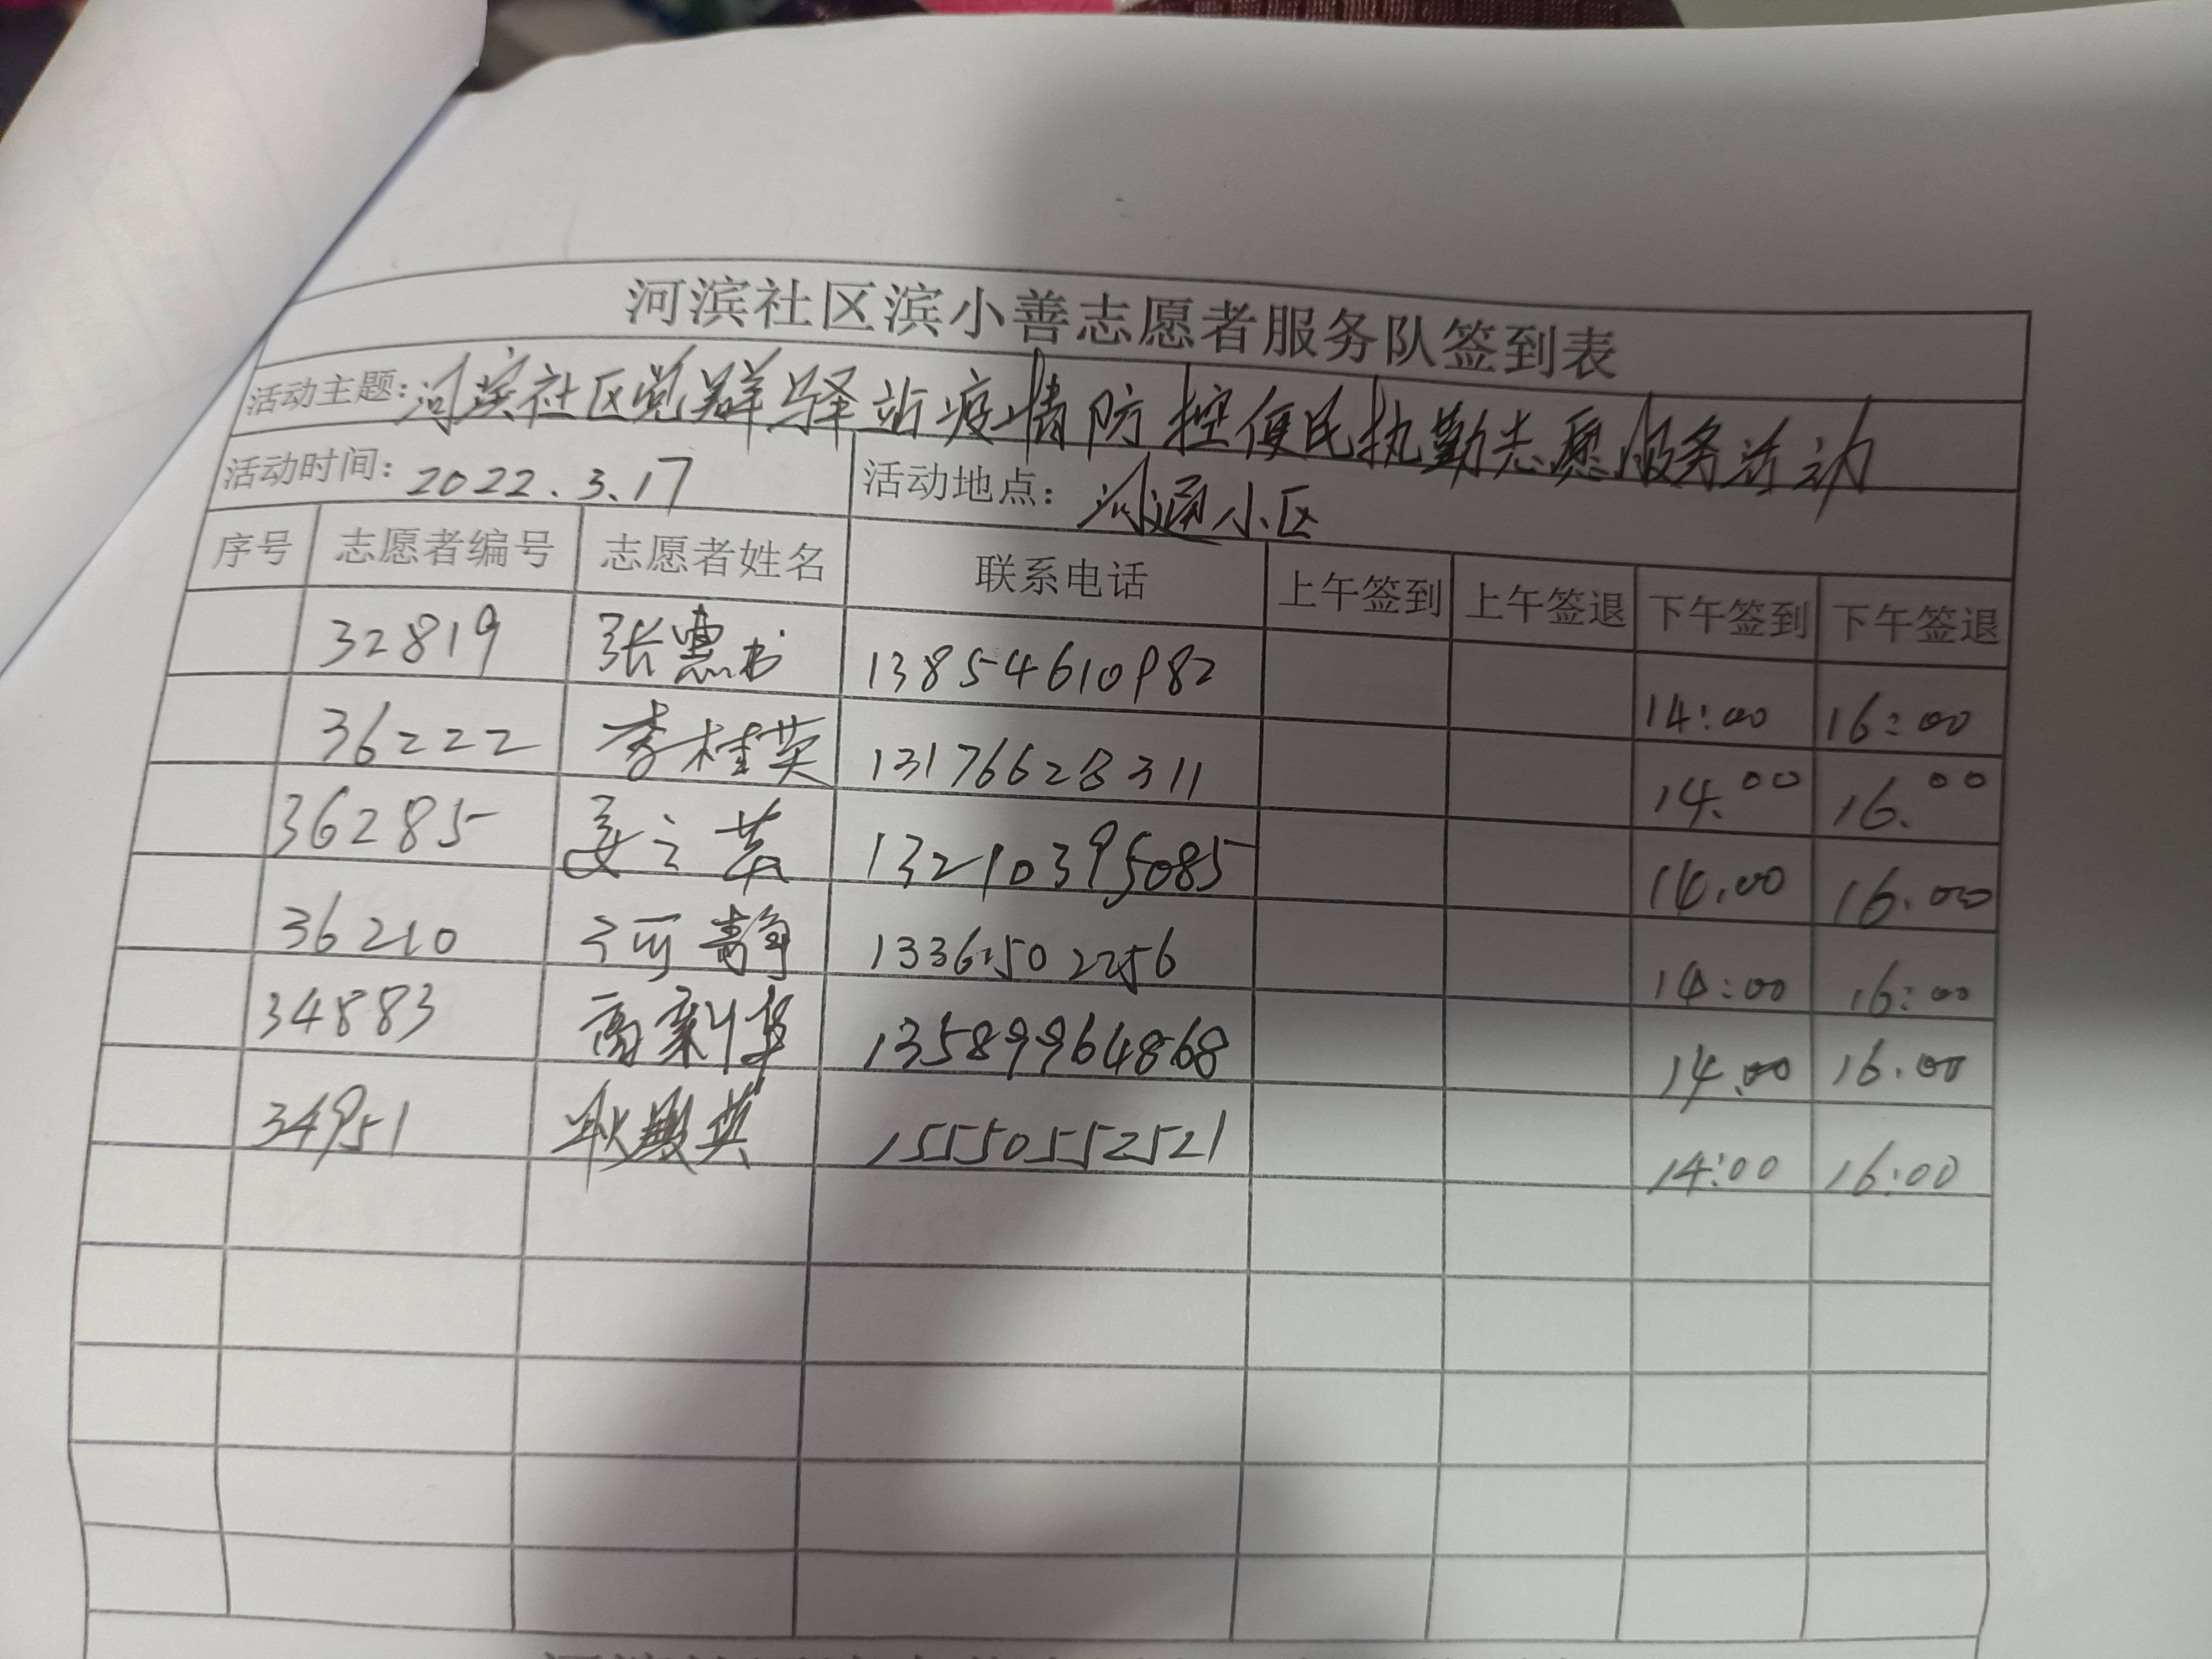 河滨社区滨小善志愿者服务队签到表
活动主题: 河滨社区党群驿站疫情防控便民执勤志愿服务活动
活动时间: 2022.3.17 活动地点: 河通小区
序号 志愿者编号 志愿者姓名 联系电话 上午签到 上午签退 下午签到 下午签退
32819 张惠书 13854610982 14:00 16:00
36222 李桂英 13176628311 14.00 16.00
36285 姜立英 13210395085 14.00 16.00
36210 静 13361502256 14:00 16:00
34883 高利华 13589964868 14.00 16.00
34951 耿英 15550552521 14:00 16:00